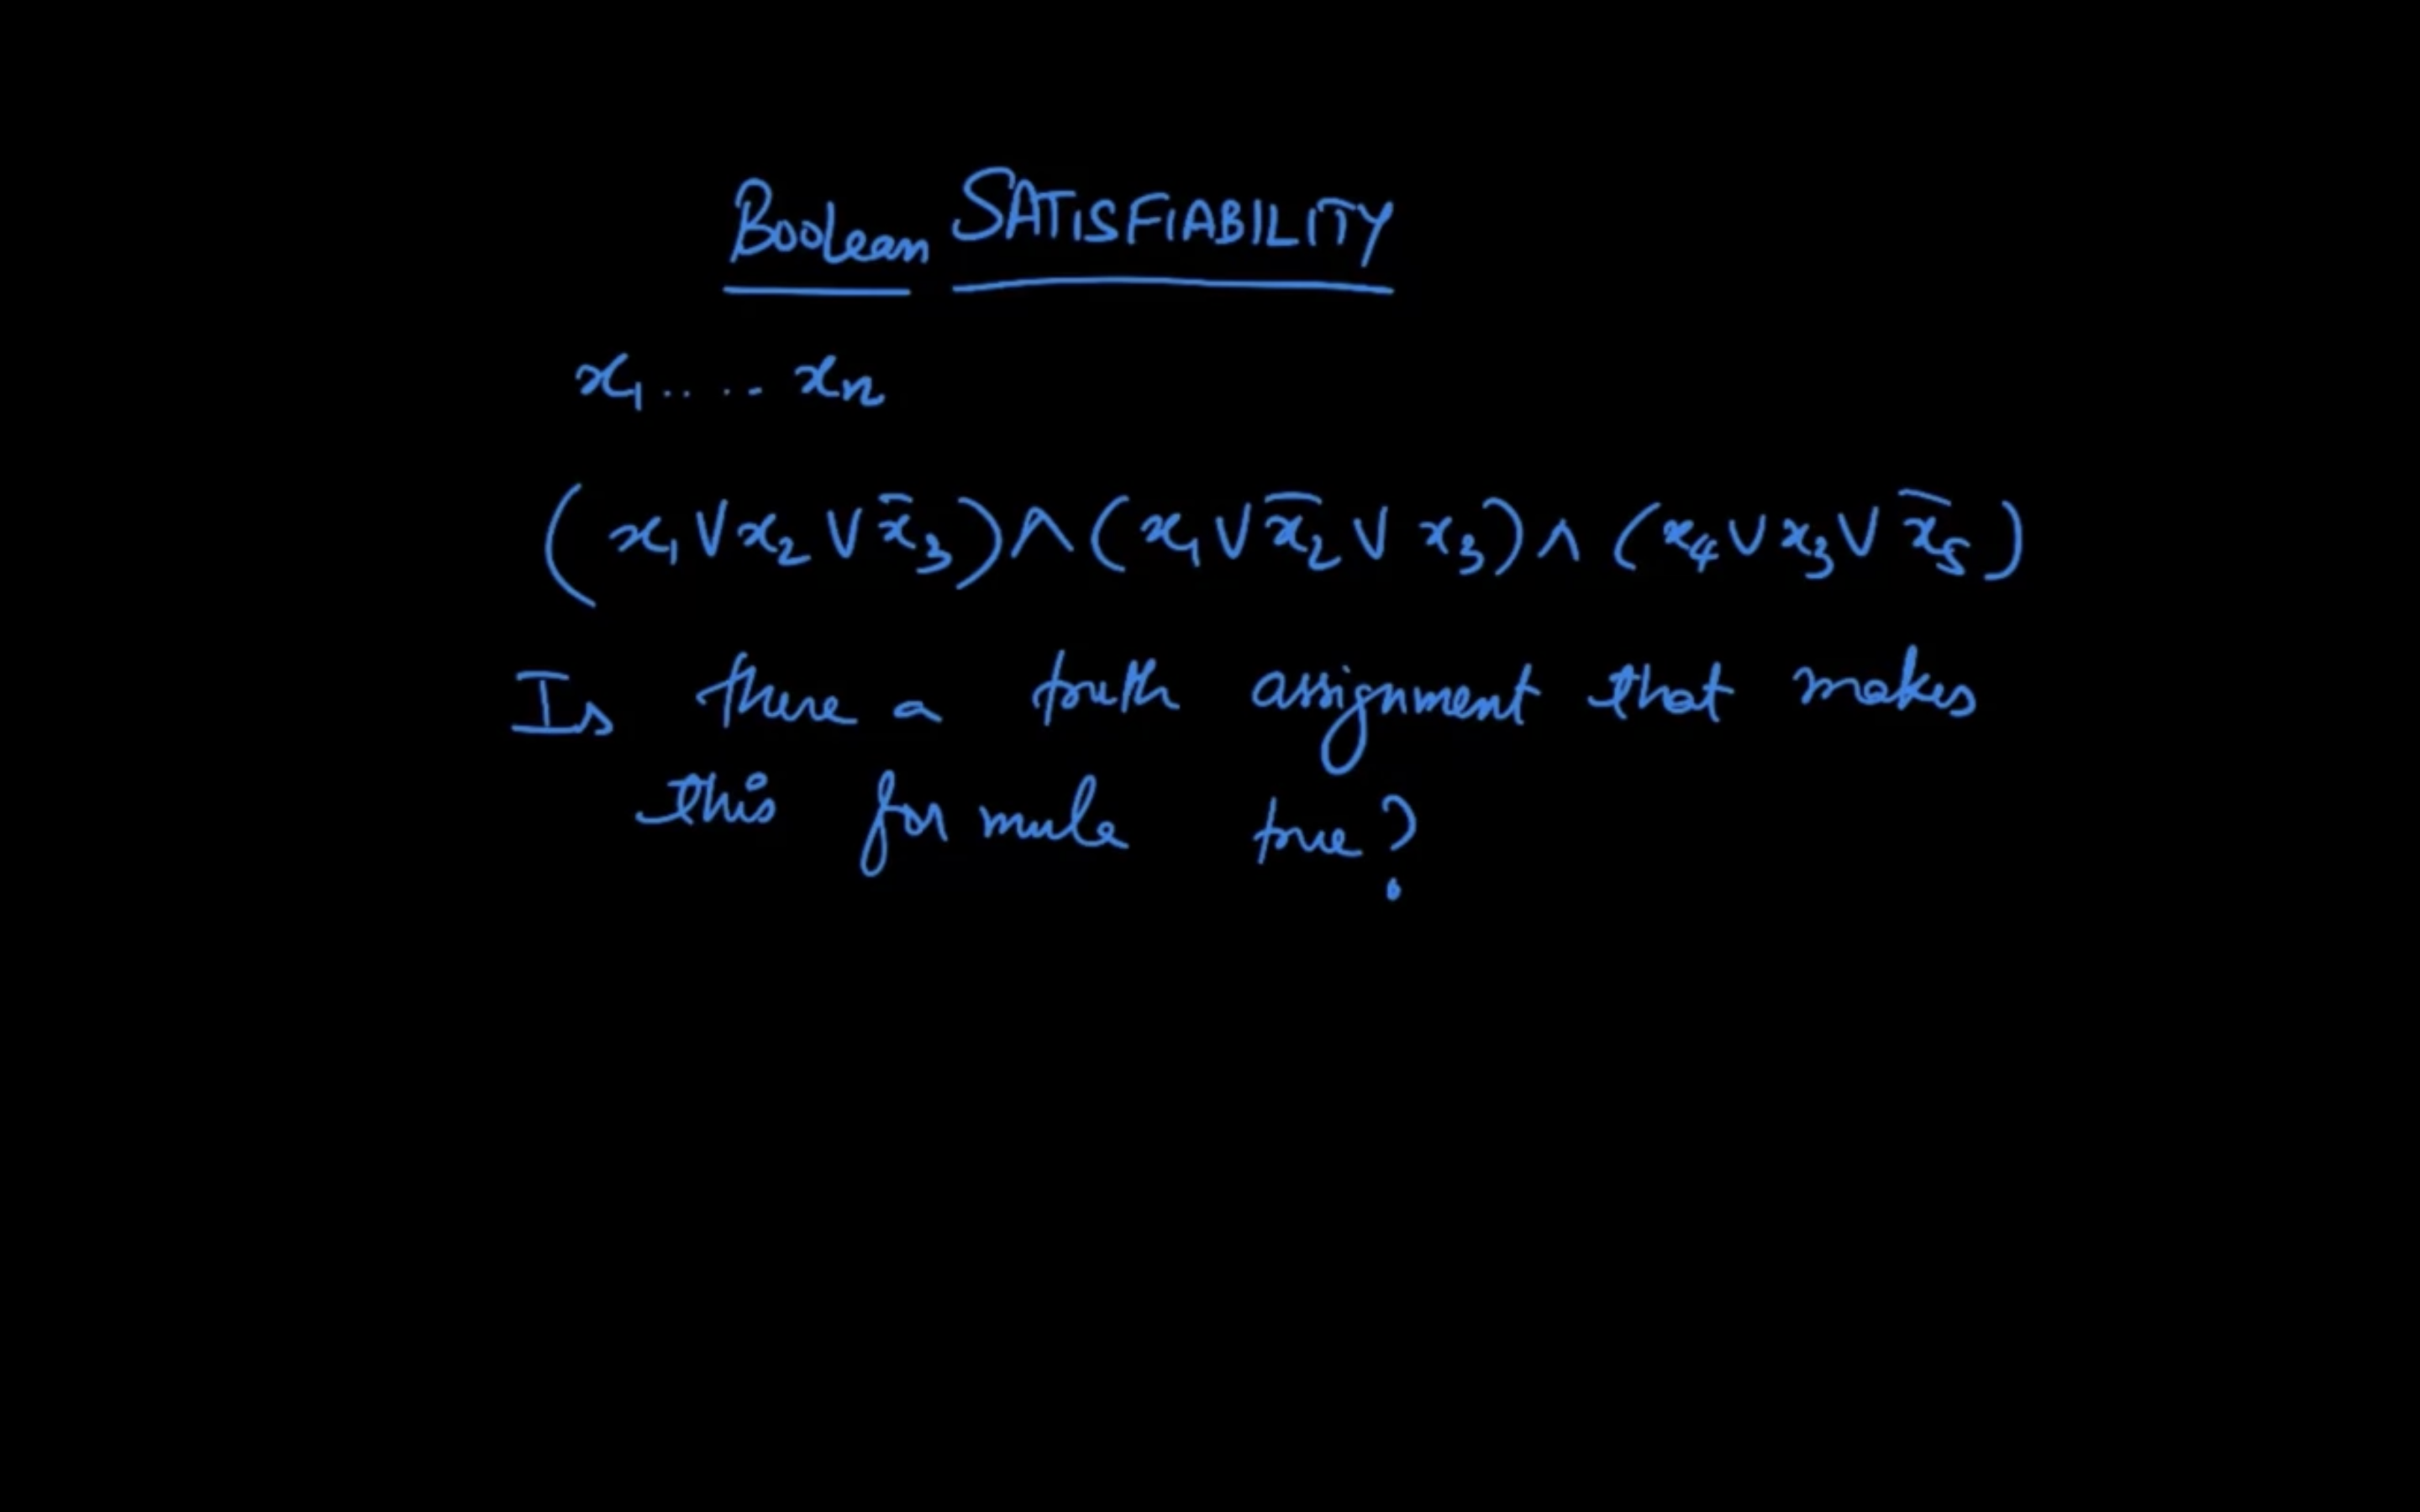 Boolean SATISFIABILITY
x₁.... xₙ
(x₁ ∨ x₂ ∨ x̄₃) ∧ (x₁ ∨ x̄₂ ∨ x₃) ∧ (x₄ ∨ x₃ ∨ x̄₅)
Is there a truth assignment that makes
this formula true?